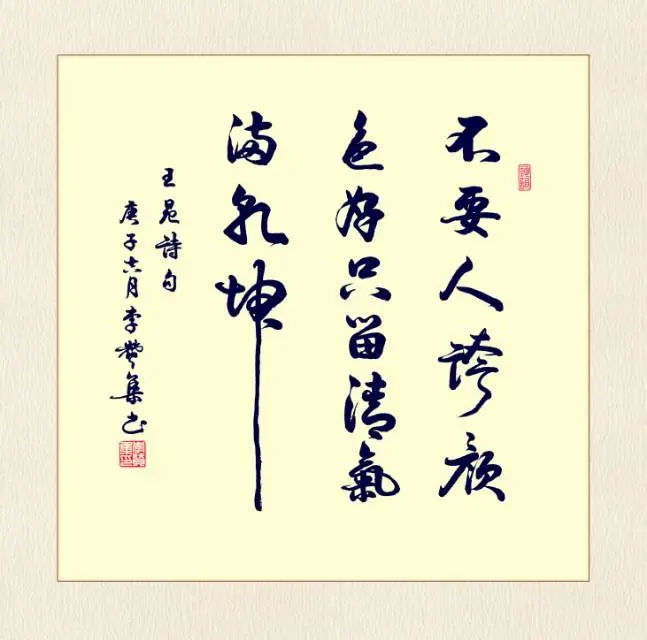 不要人誇顏
色好只留清氣
滿乾坤
王冕詩句
庚子六月李集書